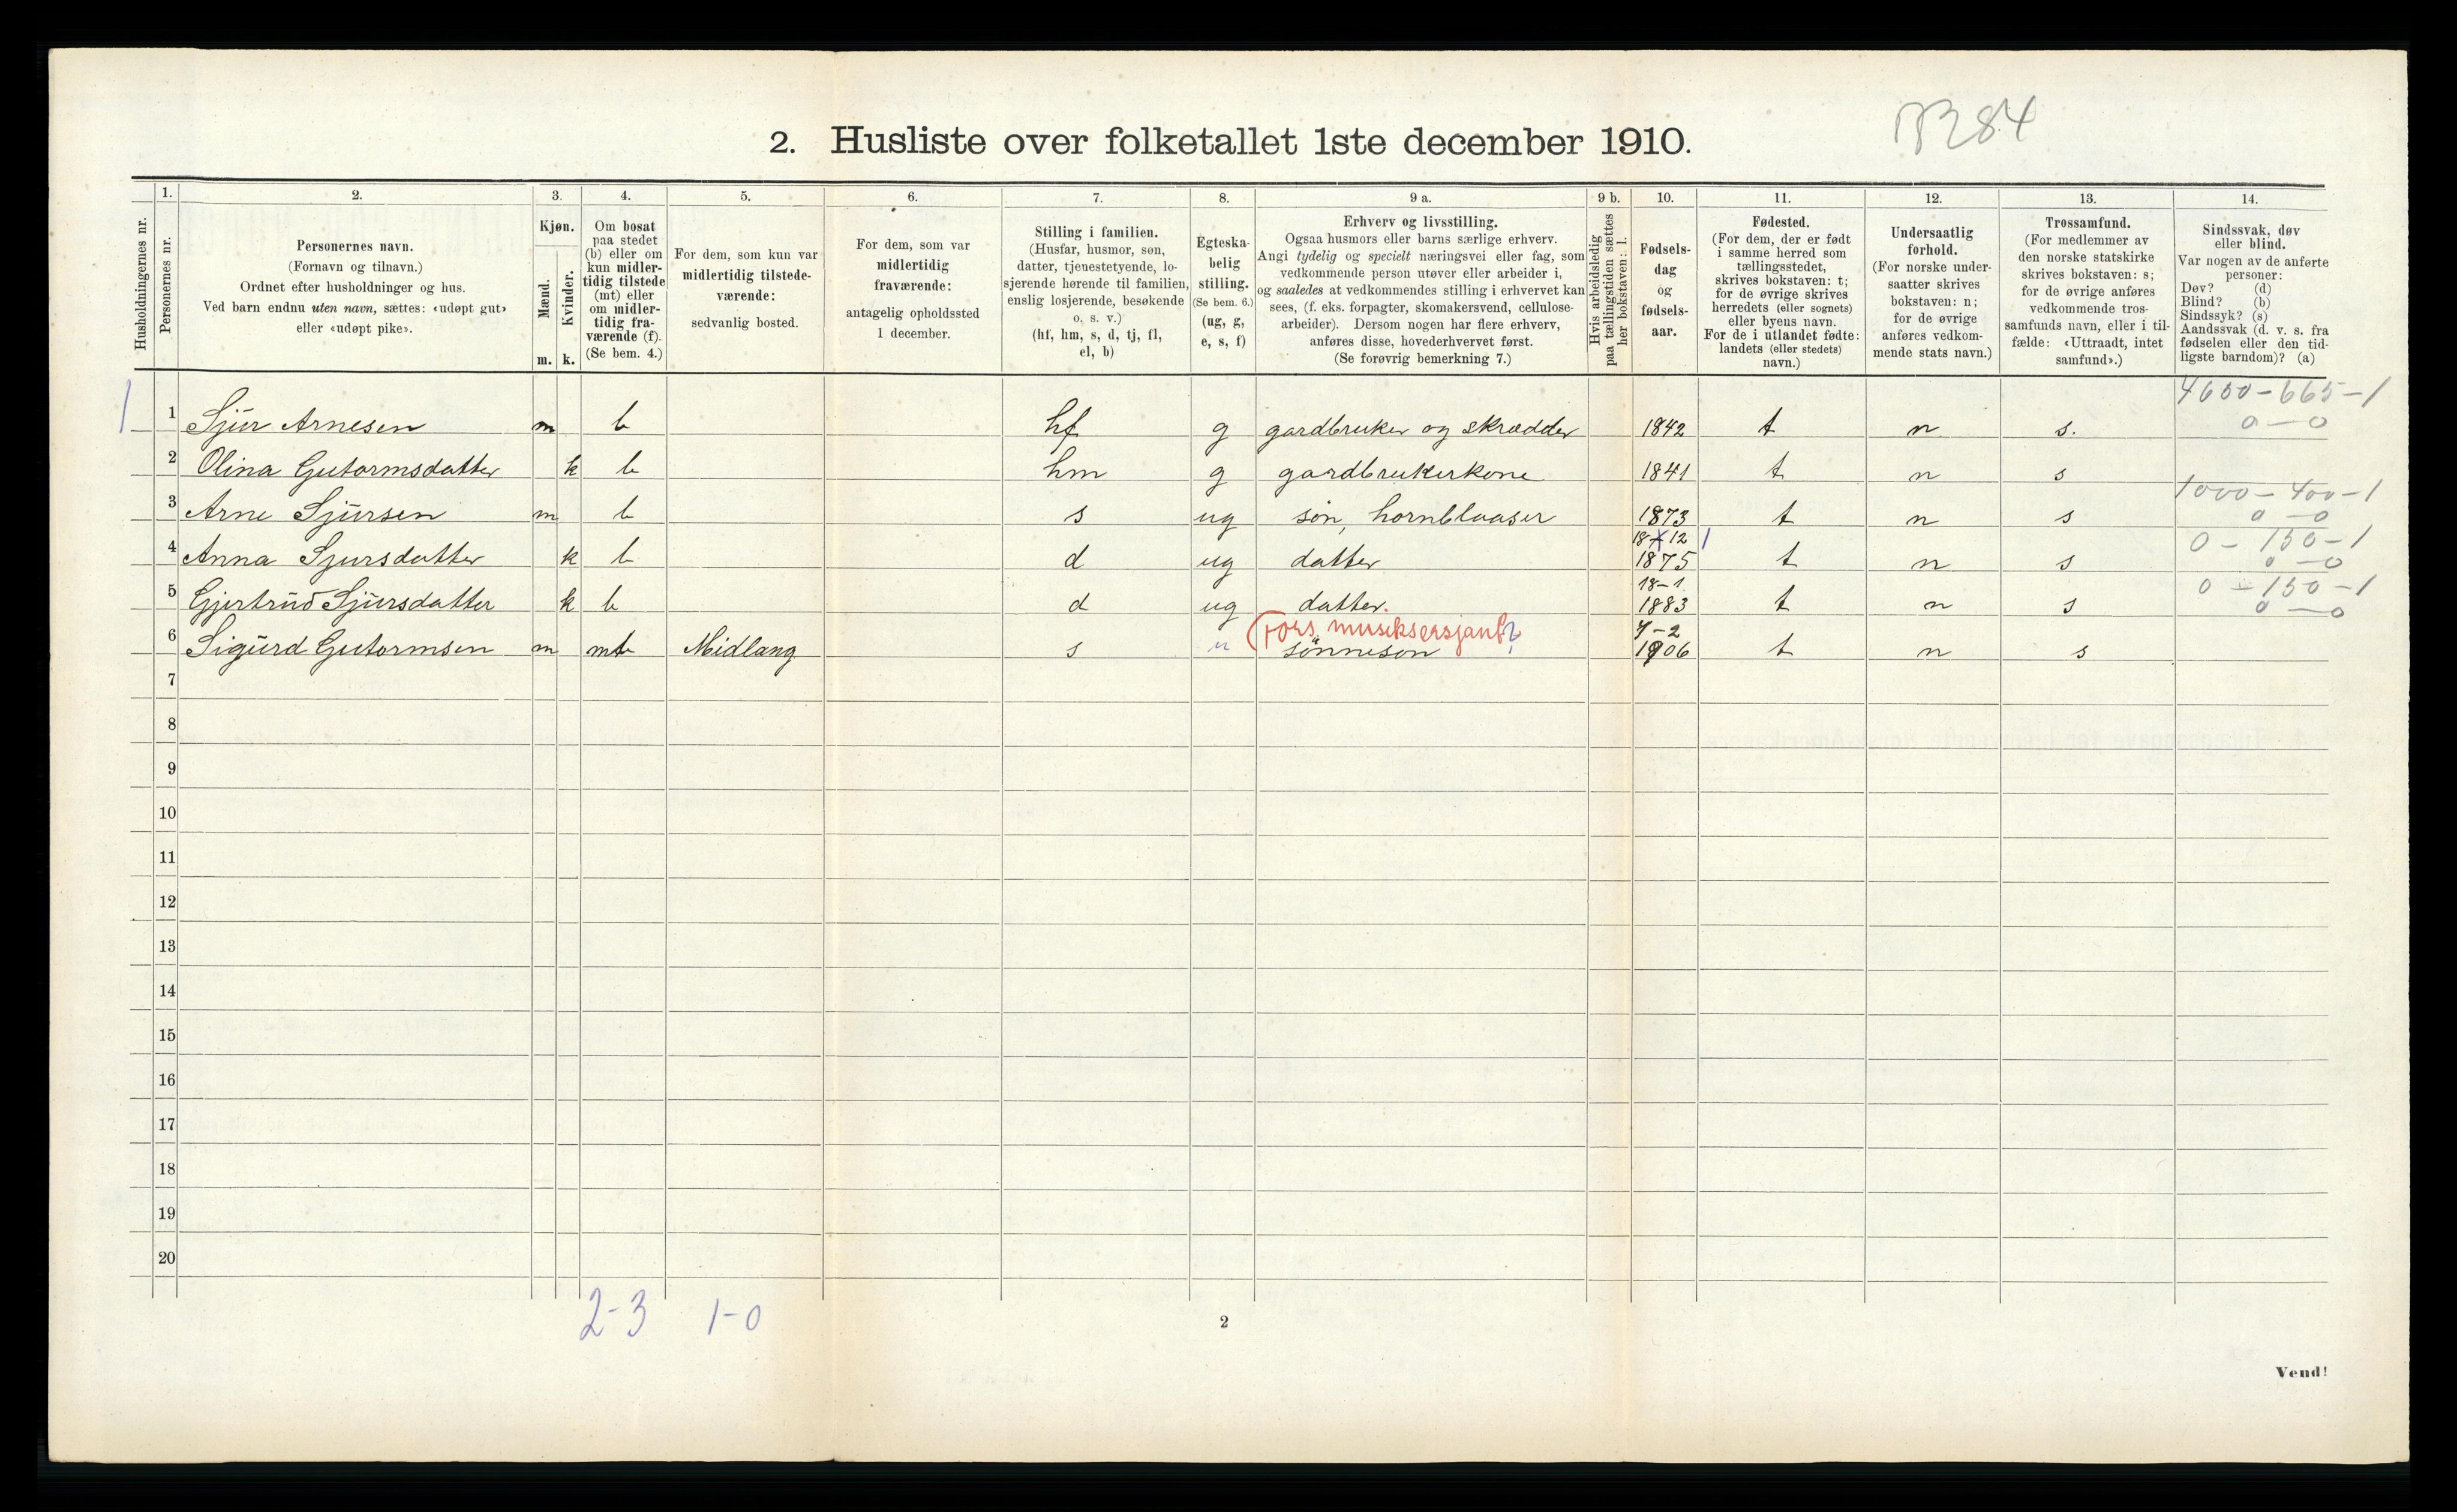 284
2. Husliste over folketallet 1ste december 1910.
1. 2. 3. 4. 5. 6. 7. 8. 9 a. 9 b. 10. 11. 12. 13. 14.
Husholdningernes nr.
Personernes nr.
Personernes navn.
(Fornavn og tilnavn.)
Ordnet efter husholdninger og hus.
Ved barn endnu uten navn, sættes: «udøpt gut»
eller «udøpt pike».
Kjøn.
Mænd.
Kvinder.
m. k.
Om bosat
paa stedet
(b) eller om
kun midler-
tidig tilstede
(mt) eller
om midler-
tidig fra-
værende (f).
(Se bem. 4.)
For dem, som kun var
midlertidig tilstede-
værende:
sedvanlig bosted.
For dem, som var
midlertidig
fraværende:
antagelig opholdssted
1 december.
Stilling i familien.
(Husfar, husmor, søn,
datter, tjenestetyende, lo-
sjerende hørende til familien,
enslig losjerende, besøkende
o. s. v.)
(hf, hm, s, d, tj, fl,
el, b)
Egteska-
belig
stilling.
(Se bem. 6.)
(ug, g,
e, s, f)
Erhverv og livsstilling.
Ogsaa husmors eller barns særlige erhverv.
Angi tydelig og specielt næringsvei eller fag, som
vedkommende person utøver eller arbeider i,
og saaledes at vedkommendes stilling i erhvervet kan
sees, (f. eks. forpagter, skomakersvend, cellulose-
arbeider). Dersom nogen har flere erhverv,
anføres disse, hovederhvervet først.
(Se forøvrig bemerkning 7.)
Hvis arbeidsledig
paa tællingstiden sættes
her bokstaven: l.
Fødsels-
dag
og
fødsels-
aar.
Fødested.
(For dem, der er født
i samme herred som
tællingsstedet,
skrives bokstaven: t;
for de øvrige skrives
herredets (eller sognets)
eller byens navn.
For de i utlandet fødte:
landets (eller stedets)
navn.)
Undersaatlig
forhold.
(For norske under-
saatter skrives
bokstaven: n;
for de øvrige
anføres vedkom-
mende stats navn.)
Trossamfund.
(For medlemmer av
den norske statskirke
skrives bokstaven: s;
for de øvrige anføres
vedkommende tros-
samfunds navn, eller i til-
fælde: «Uttraadt, intet
samfund».)
Sindssvak, døv
eller blind.
Var nogen av de anførte
personer:
Døv? (d)
Blind? (b)
Sindssyk? (s)
Aandssvak (d. v. s. fra
fødselen eller den tid-
ligste barndom)? (a)
4600-665-1
1 1 Sjur Arnesen m b hf g gardbruker og skrædder 1842 t n s. 0-0
2 Olina Gutormsdatter k b hm g gardbrukerkone 1841 t n s
1000-400-1
3 Arne Sjursen m b s ug søn, hornblaaser 1873 t n s 0-0
18 12 1 0-150-1
4 Anna Sjursdatter k b d ug datter 1875 t n s 0-0
18-1 0-150-1
5 Gjertrud Sjursdatter k b d ug datter. 1883 t n s 0-0
(Fors. musiksersjant? 4-2
6 Sigurd Gutormsen m mt Midlang s u sønneson 1906 t n s
7
8
9
10
11
12
13
14
15
16
17
18
19
20
2-3 1-0
2
Vend!